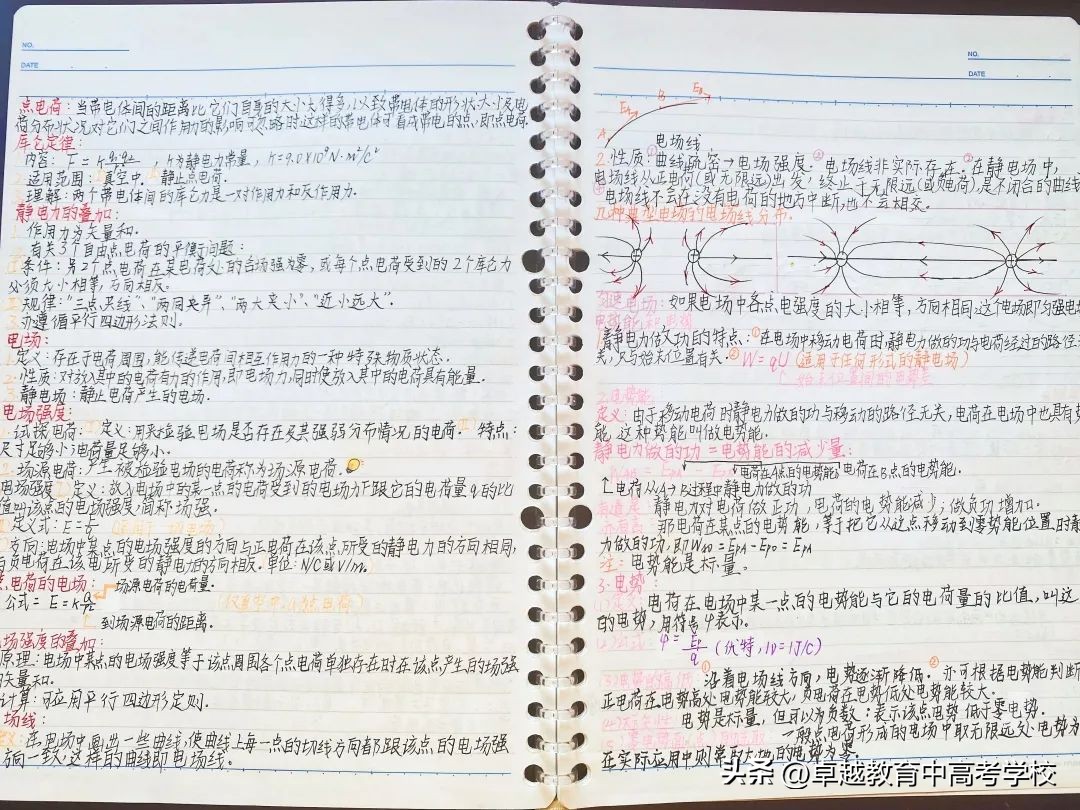 NO.
DATE
点电荷：当带电体间的距离比它们自身的大小大得多，以致带电体的形状、大小及电
荷分布状况对它们之间作用力的影响可忽略时这样的带电体可看成带电的点，即点电荷.
库仑定律：
内容：F=k q₁q₂/r², k为静电力常量，k=9.0×10⁹N·m²/C²
2. 适用范围：真空中. 静止点电荷.
3. 理解：两个带电体间的库仑力是一对作用力和反作用力.
静电力的叠加：
1. 作用力为矢量和.
2. 有关3个自由点电荷的平衡问题：
条件：另2个点电荷在某电荷处的合场强为零，或每个点电荷受到的2个库仑力
必须大小相等，方向相反.
规律："三点共线"、"两同夹异"、"两大夹小"、"近小远大".
3. 办遵循平行四边形法则.
电场：
1. 定义：存在于电荷周围，能传递电荷间相互作用力的一种特殊物质状态.
2. 性质：对放入其中的电荷有力的作用，即电场力，同时使放入其中的电荷具有能量.
3. 静电场：静止电荷产生的电场.
电场强度：
1. 试探电荷：① 定义：用来检验电场是否存在及其强弱分布情况的电荷. 特点：
尺寸足够小，电荷量足够小.
2. 场源电荷：产生被检验电场的电荷称为场源电荷.
电场强度 定义：放入电场中的某一点的电荷受到的电场力F跟它的电荷量q的比
值叫该点的电场强度，简称场强.
定义式：E=F/q
方向：电场中某点的电场强度的方向与正电荷在该点所受的静电力的方向相同，
与负电荷在该点所受的静电力的方向相反. 单位：N/C或V/m.
点电荷的电场： 场源电荷的电荷量.
公式= E=kQ/r² （仅真空中，点电荷）
到场源电荷的距离.
电场强度的叠加：
原理：电场中某点的电场强度等于该点周围各个点电荷单独存在时在该点产生的场强
的矢量和.
计算：可应用平行四边形定则.
电场线：
定义：在电场中画出一些曲线，使曲线上每一点的切线方向都跟该点的电场强
方向一致，这样的曲线即电场线.
NO.
DATE
A B EA EB
电场线
2. 性质：①曲线疏密→电场强度. ②电场线非实际存在. ③在静电场中，
电场线从正电荷(或无限远)出发，终止于无限远(或负电荷)，是不闭合的曲线
④电场线不会在没有电荷的地方中断，也不会相交.
几种典型电场的电场线分布.
匀速电场：如果电场中各点电强度的大小相等，方向相同，这个电场即匀强电场
电势能和电势
1. 静电力做功的特点：①在电场中移动电荷时，静电力做的功与电荷经过的路径无
关，只与始末位置有关. ②W=qU (适用于任何形式的静电场)
始末位置间的电势差
2. 电势能
定义：由于移动电荷时静电力做的功与移动的路径无关，电荷在电场中也具有势
能，这种势能叫做电势能.
静电力做的功=电势能的减少量：
电荷在A点的电势能 电荷在B点的电势能.
电荷从A→B过程中静电力做的功
静电力对电荷做正功，电荷的电势能减少；做负功增加.
那电荷在某点的电势能，等于把它从这点移动到零势能位置时静
力做的功，即WAO=EPA-EPO=EPA
注：电势能是标量.
3. 电势：
(1)定义 电荷在电场中某一点的电势能与它的电荷量的比值，叫这
的电势，用符号φ表示.
(2)公式：φ=Ep/q (伏特，1V=1J/C)
①沿着电场线方向，电势逐渐降低. ②亦可根据电势能判断
正电荷在电势高处电势能较大，负电荷在电势低处电势能较大.
电势是标量，但可以为负数；表示该点电势低于零电势.
一般点电荷形成的电场中取无限远处电势为
在实际应用中则常取大地的电势为零.
头条 @卓越教育中高考学校